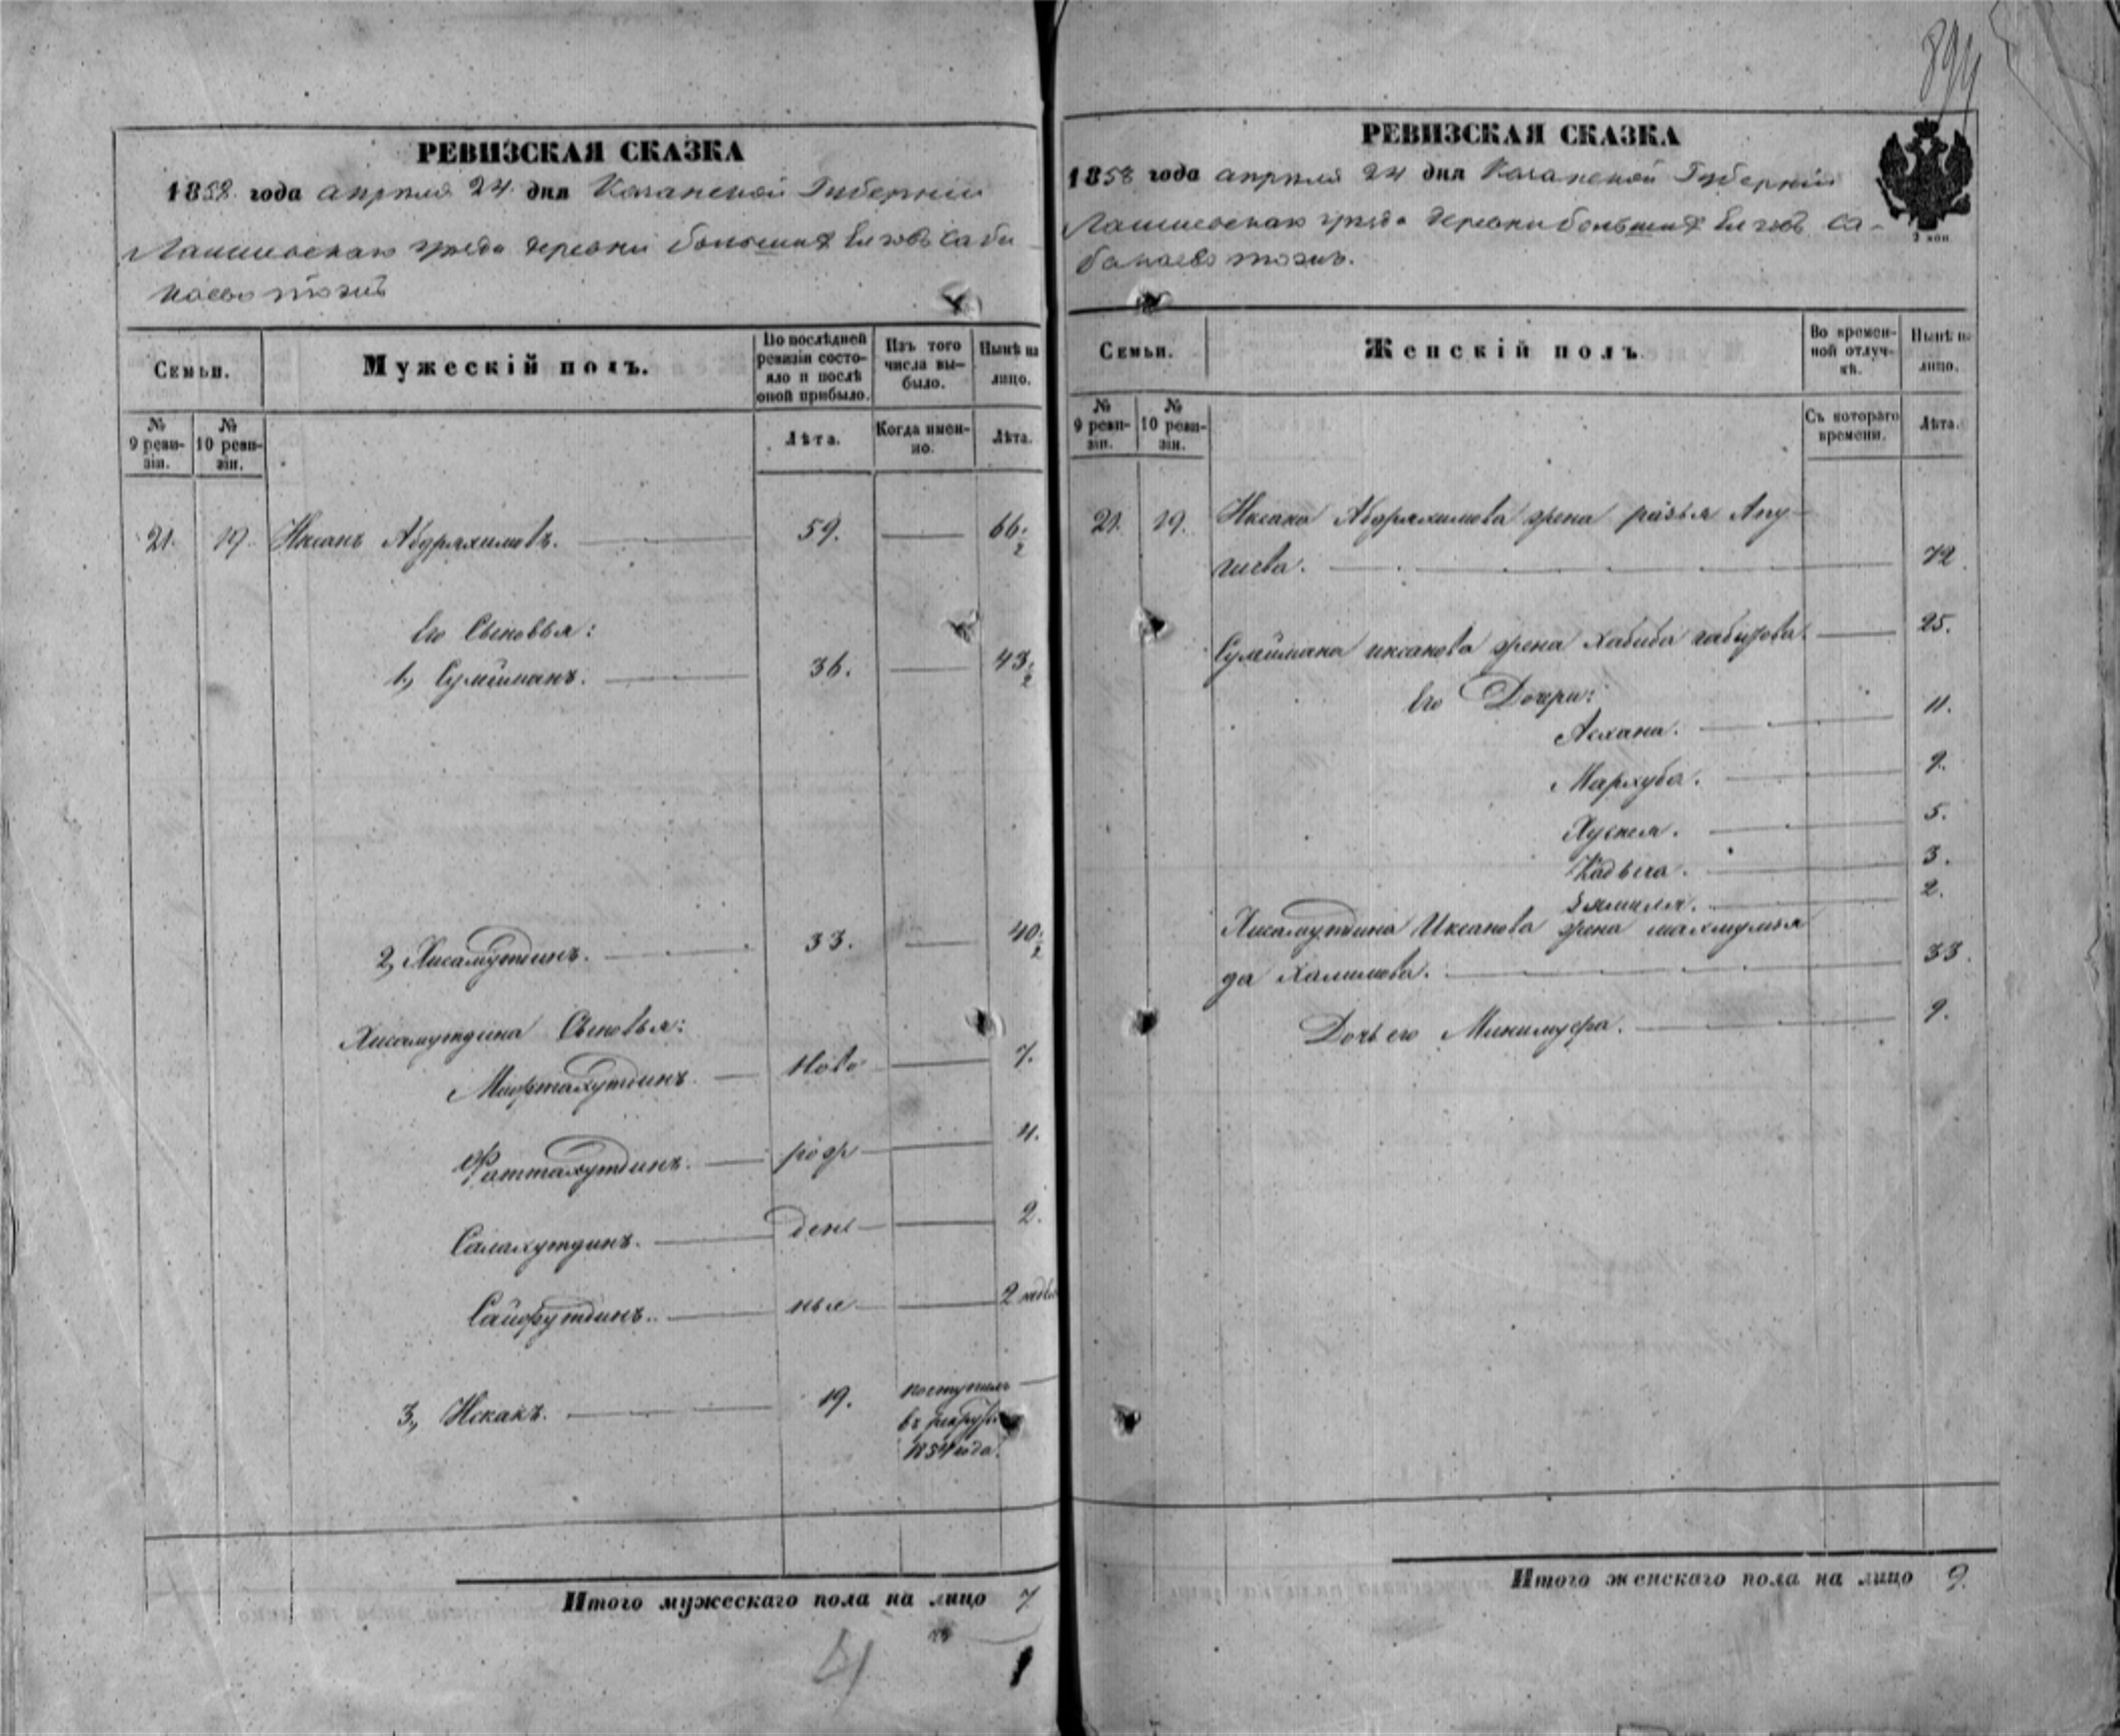 894
РЕВИЗСКАЯ СКАЗКА
1858 года апреля 24 дня Казанской Губернии
Лаишевскаго уезда деревни большихъ Елговъ Саба-
наево тожъ
Семьи.
Мужескій полъ.
По послѣдней ревизіи состояло и послѣ оной прибыло.
Изъ того числа выбыло.
Нынѣ на лицо.
№ 9 ревизіи.
№ 10 ревизіи.
Лѣта.
Когда именно.
Лѣта.
21. 19. Иксанъ Абдряхимовъ. 59. 66.
2
Его Сыновья:
1, Сулейманъ. 36. 43.
2
2, Хисамутдинъ. 33. 40.
2
Хисамутдина Сыновья:
Мифтахутдинъ. ново 7.
Фаттахутдинъ. рож 4.
Салахутдинъ. ден 2.
Сайфутдинъ. ныя 2 недѣл
3, Искакъ. 19. поступилъ
въ рекруты
1854 года.
Итого мужескаго пола на лицо 7
РЕВИЗСКАЯ СКАЗКА
1858 года апреля 24 дня Казанской Губернии
Лаишевскаго уезда деревни большихъ Елговъ Са-
банаево тожъ.
Семьи.
Женскій полъ.
Во временной отлучкѣ.
Нынѣ на лицо.
№ 9 ревизіи.
№ 10 ревизіи.
Съ котораго времени.
Лѣта.
21. 19. Иксана Абдряхимова жена разья Апу-
шева. 72.
Сулеймана иксанова жена Хабиба габитова. 25.
Его Дочери:
Асхана. 11.
Мархуба. 9.
Хусния. 5.
Хадыча. 3.
Зямиля. 2.
Хисамутдина Иксанова жена махмумья
да Халитова. 33.
Дочь его Минимуфа. 9.
Итого женскаго пола на лицо 9.